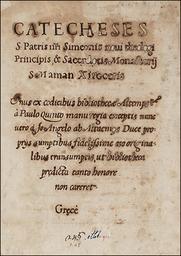 CATECHESES
S Patris nri Simeonis noui theologi
Principis, & Sacerdotis Monasterij
S. Maman Xiroceris
Onus ex codicibus bibliothecæ Altemps
à Paulo Quinto manu regia exceptis nunc
uero à Jo Angelo ab Altaemps Duce pro
prys sumptibus fidelissime ex origina
libus transumptis, ut bibliotheca
predicta tanto honore
non careret
Græcè